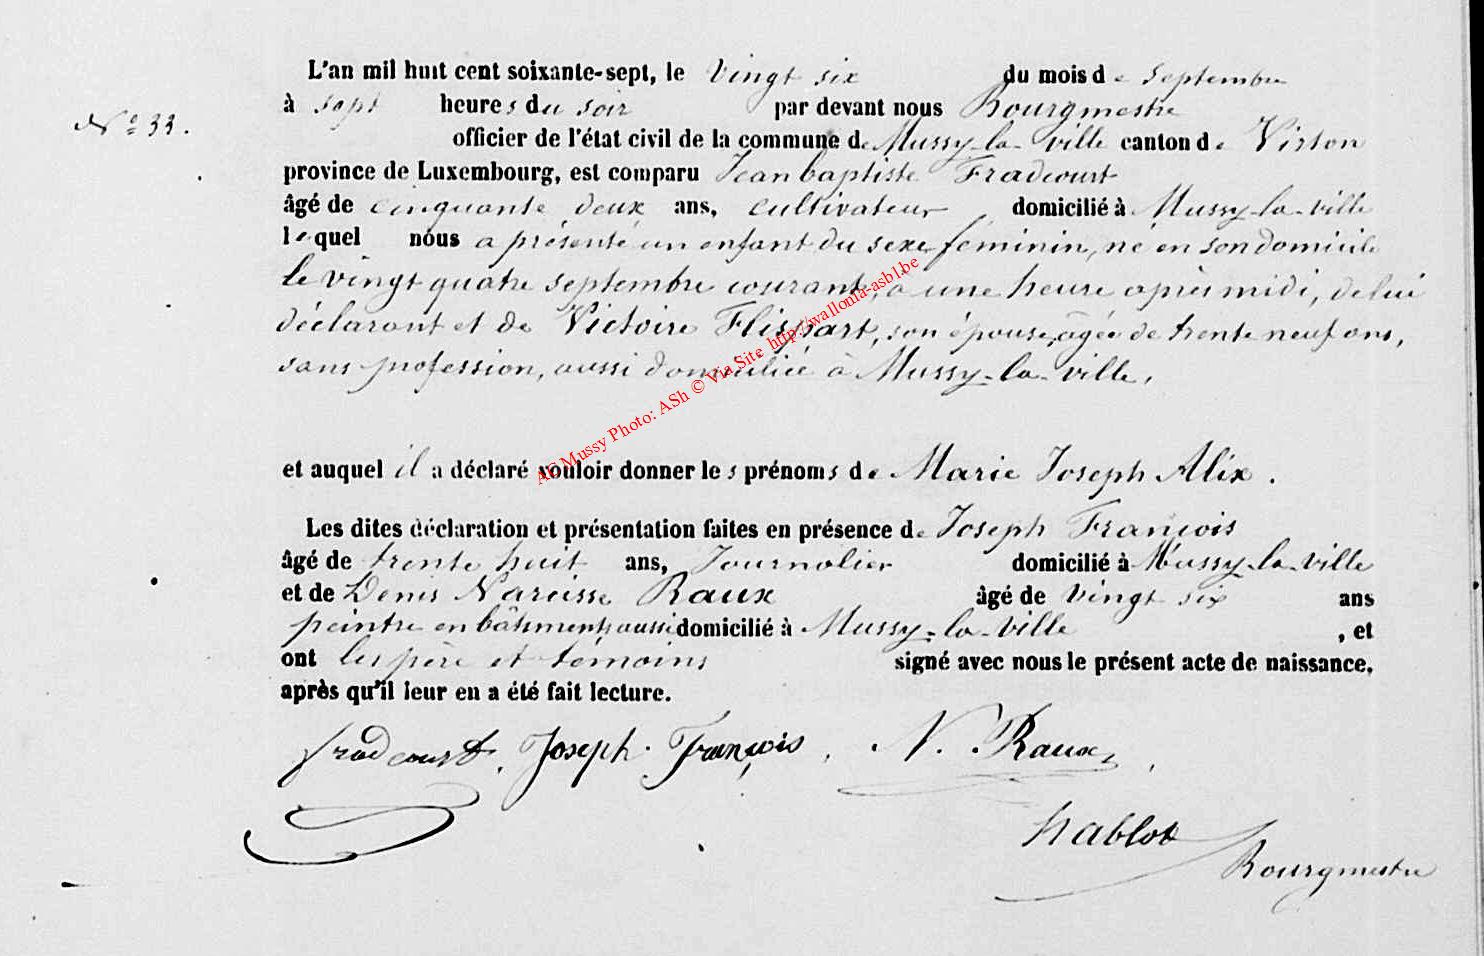 L'an mil huit cent soixante-sept, le vingt six du mois de Septembre
N° 33.
à sept heures du soir par devant nous Bourgmestre
officier de l'état civil de la commune de Mussy-la-ville canton de Virton
province de Luxembourg, est comparu Jean baptiste Fradcourt
âgé de cinquante deux ans, cultivateur domicilié à Mussy-la-ville
lequel nous a présenté un enfant du sexe féminin, né en son domicile
le vingt quatre septembre courant, à une heure après midi, de lui
déclarant et de Victoire Flispart, son épouse, âgée de trente neuf ans,
sans profession, aussi domiciliée à Mussy-la-ville,
et auquel il a déclaré vouloir donner les prénoms de Marie Joseph Alix.
Les dites déclaration et présentation faites en présence de Joseph François
âgé de trente huit ans, Journalier domicilié à Mussy-la-ville
et de Denis Narcisse Raux âgé de vingt six ans
peintre en bâtiments aussi domicilié à Mussy-la-ville, et
ont les père et témoins signé avec nous le présent acte de naissance,
après qu'il leur en a été fait lecture.
fradcourt, Joseph François, N. Raux,
hablot
Bourgmestre
AC Mussy Photo: ASh © Via Site http://wallonia-asbl.be